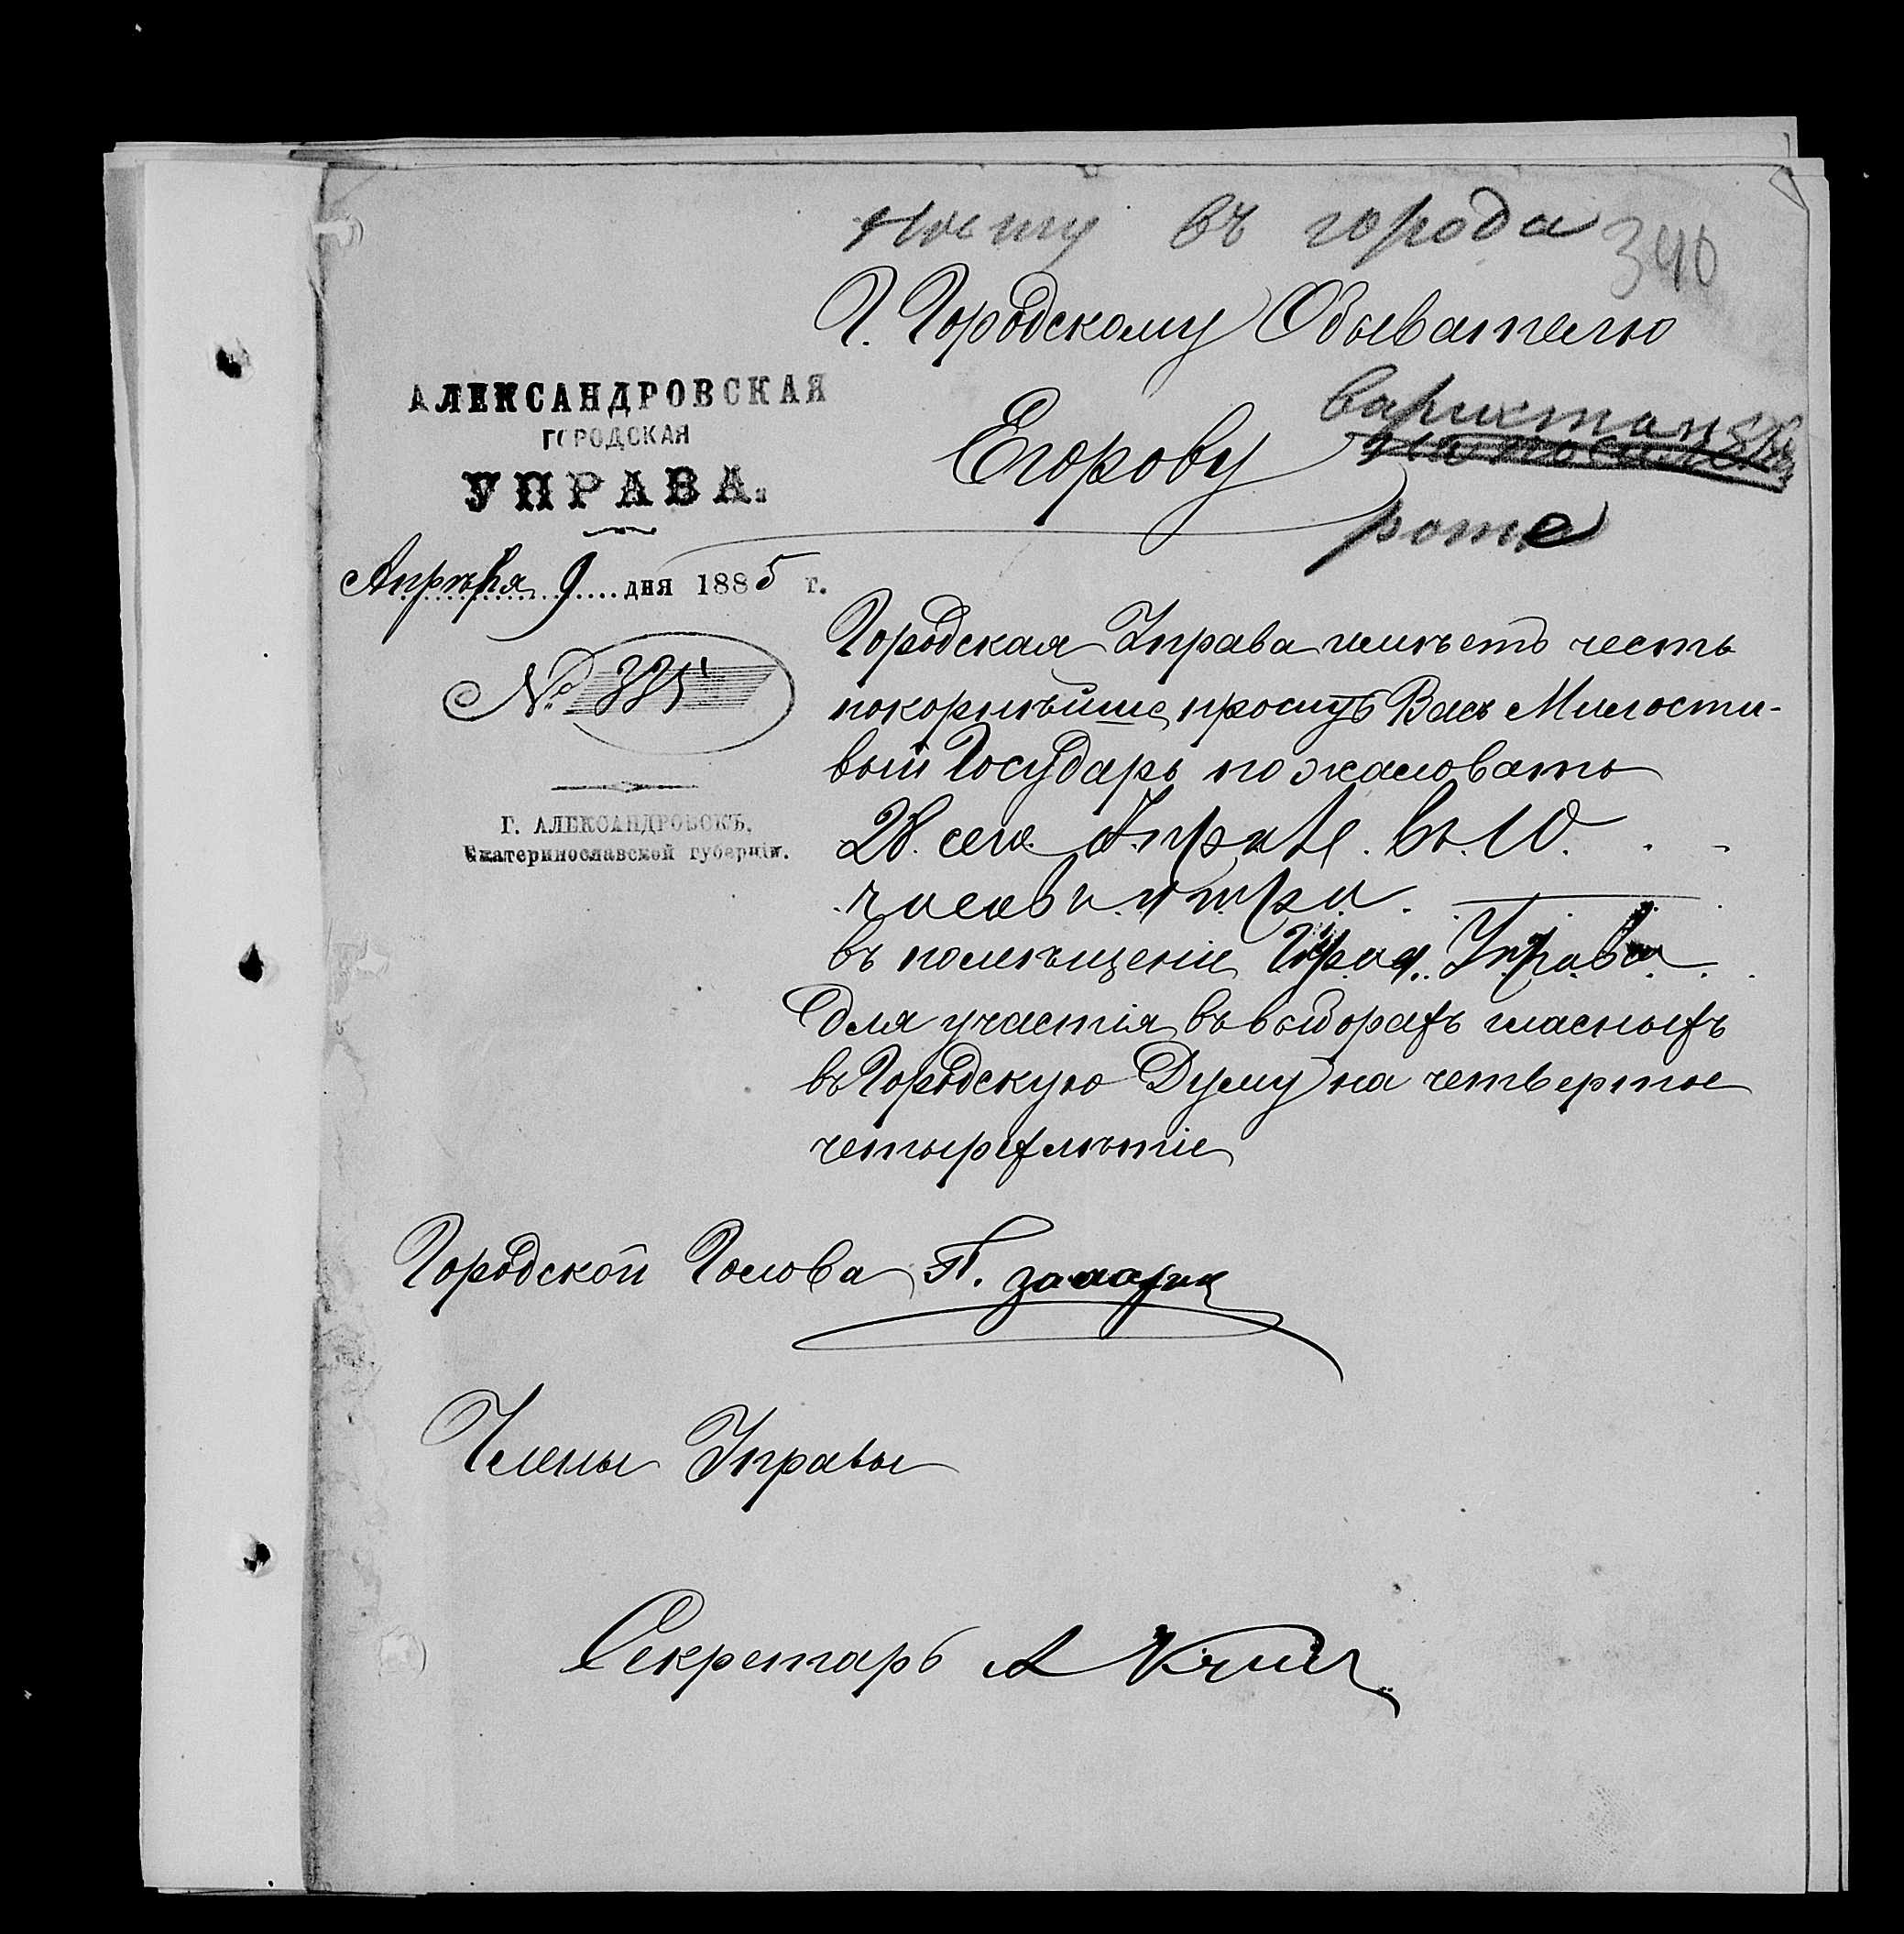 въ города 340
Г. Городскому Обывателю
АЛЕКСАНДРОВСКАЯ
ГОРОДСКАЯ
УПРАВА.
Егорову
роте
Апрѣля 9 дня 1885 г.
№ 335
Г. АЛЕКСАНДРОВСКЪ,
Екатеринославской губерніи.
Городская Управа имѣетъ честь
покорнѣйше просить Васъ Милости-
вый Государь пожаловать
28. сего Апрѣл. въ 10.
часовъ утра.
въ помѣщеніе Город. Управы
для участія въ выборахъ гласныхъ
въ Городскую Думу на четвертое
четырехлѣтіе
Городской Голова П.
Члены Управы
Секретарь А